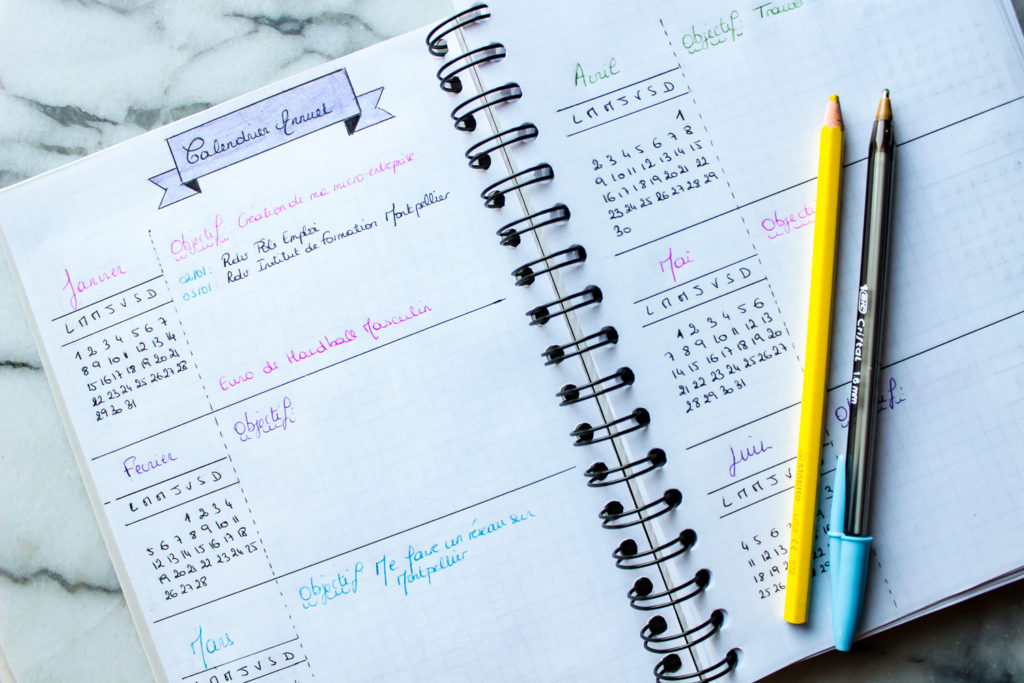 Calendrier Annuel
Janvier
L M M J V S D
1 2 3 4 5 6 7
8 9 10 11 12 13 14
15 16 17 18 19 20 21
22 23 24 25 26 27 28
29 30 31
Objectif: Création de ma micro-entreprise
02/01: Rdv Pôle Emploi
03/01: Rdv Institut de Formation Montpellier
Euro de Handball Masculin
Février
L M M J V S D
1 2 3 4
5 6 7 8 9 10 11
12 13 14 15 16 17 18
19 20 21 22 23 24 25
26 27 28
Objectif:
Mars
L M M J V S D
Objectif: Me faire un réseau sur
Montpellier
Avril
L M M J V S D
1
2 3 4 5 6 7 8
9 10 11 12 13 14 15
16 17 18 19 20 21 22
23 24 25 26 27 28 29
30
Objectif:
Mai
L M M J V S D
1 2 3 4 5 6
7 8 9 10 11 12 13
14 15 16 17 18 19 20
21 22 23 24 25 26 27
28 29 30 31
Objecti
Juin
L M M J
4 5 6
11 12 13
18 19
25 26
Cristal 1.6mm